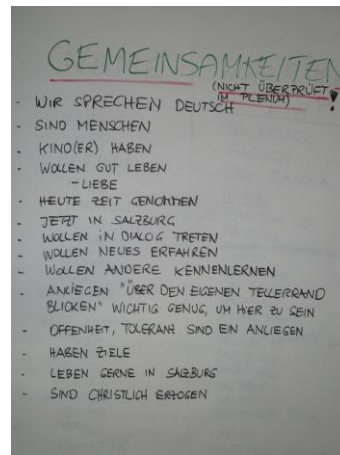 GEMEINSAMKEITEN
(NICHT ÜBERPRÜFT
IM PLENUM) !
- WIR SPRECHEN DEUTSCH
- SIND MENSCHEN
- KIND(ER) HABEN
- WOLLEN GUT LEBEN
- LIEBE
- HEUTE ZEIT GENOMMEN
- JETZT IN SALZBURG
- WOLLEN IN DIALOG TRETEN
- WOLLEN NEUES ERFAHREN
- WOLLEN ANDERE KENNENLERNEN
- ANLIEGEN "ÜBER DEN EIGENEN TELLERRAND
BLICKEN" WICHTIG GENUG, UM HIER ZU SEIN
- OFFENHEIT, TOLERANZ SIND EIN ANLIEGEN
- HABEN ZIELE
- LEBEN GERNE IN SALZBURG
- SIND CHRISTLICH ERZOGEN